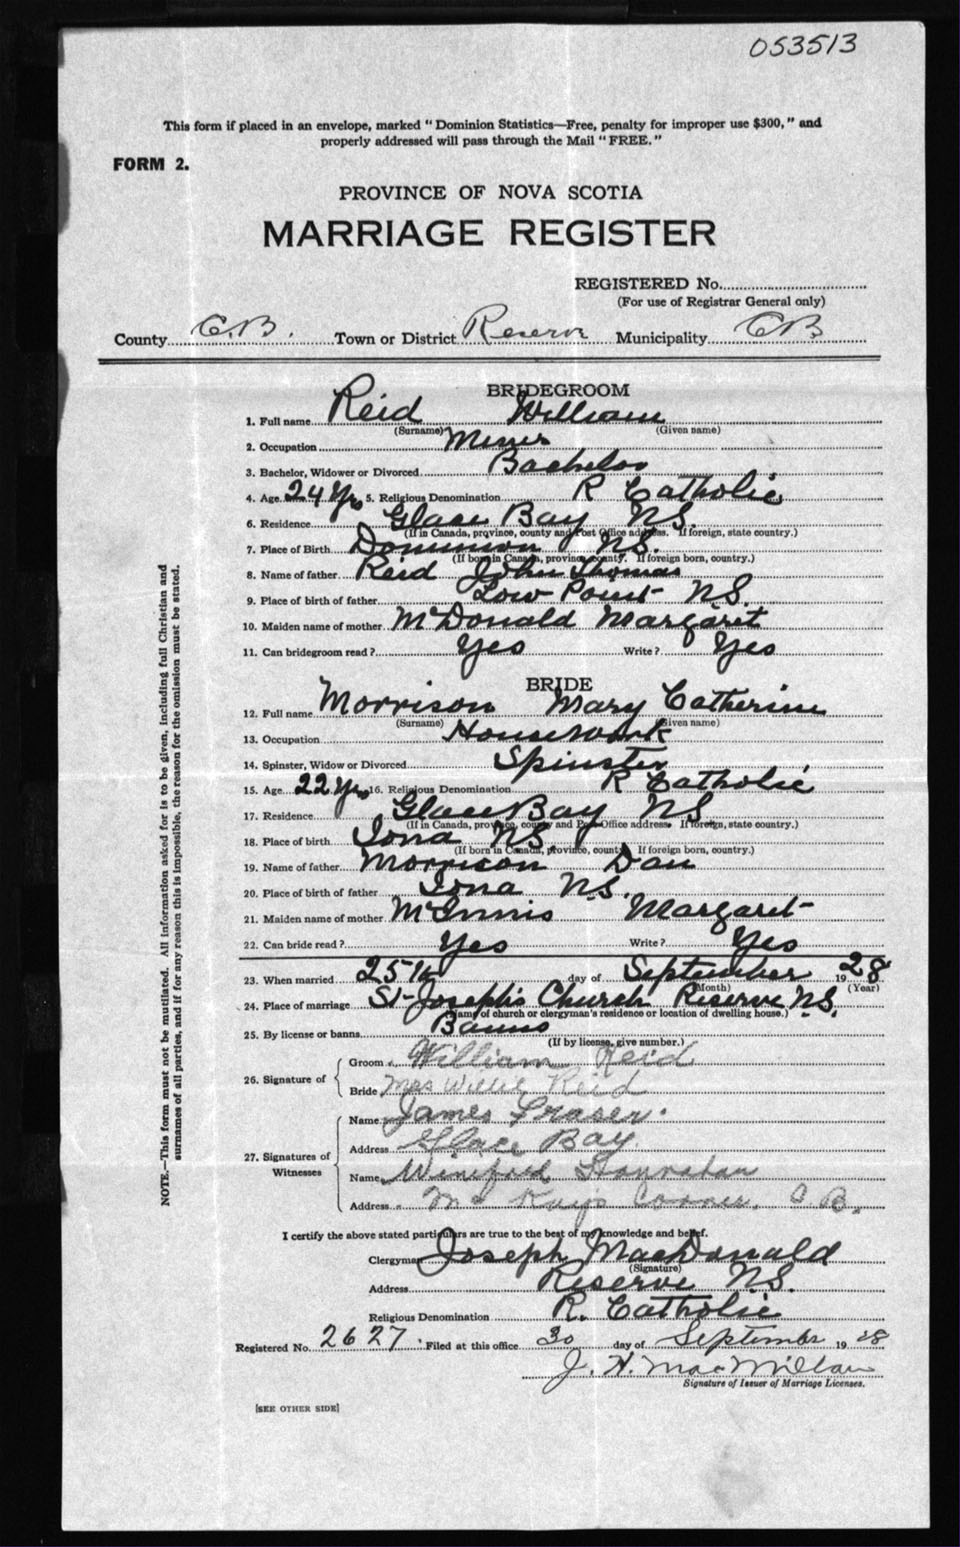 053513
This form if placed in an envelope, marked "Dominion Statistics—Free, penalty for improper use $300," and
properly addressed will pass through the Mail "FREE."
FORM 2.
PROVINCE OF NOVA SCOTIA
MARRIAGE REGISTER
REGISTERED No.
(For use of Registrar General only)
County C.B. Town or District Reserve Municipality C.B.
BRIDEGROOM
1. Full name Reid William
(Surname) (Given name)
2. Occupation Miner
3. Bachelor, Widower or Divorced Bachelor
4. Age 24 Yrs 5. Religious Denomination R Catholic
6. Residence Glace Bay N.S.
(If in Canada, province, county and Post Office address. If foreign, state country.)
7. Place of Birth Dominion N.S.
(If born in Canada, province, county. If foreign born, country.)
8. Name of father Reid John Thomas
9. Place of birth of father Low Point N.S.
10. Maiden name of mother McDonald Margaret
11. Can bridegroom read? Yes Write? Yes
BRIDE
12. Full name Morrison Mary Catherine
(Surname) (Given name)
13. Occupation Housework
14. Spinster, Widow or Divorced Spinster
15. Age 22 Yrs 16. Religious Denomination R Catholic
17. Residence Glace Bay N.S
(If in Canada, province, county and Post Office address. If foreign, state country.)
18. Place of birth Iona N.S.
(If born in Canada, province, county. If foreign born, country.)
19. Name of father Morrison Dan
20. Place of birth of father Iona N.S.
21. Maiden name of mother McInnis Margaret
22. Can bride read? Yes Write? Yes
23. When married 25th day of September 1928
(Month) (Year)
24. Place of marriage St Joseph's Church Reserve N.S.
(Name of church or clergyman's residence or location of dwelling house.)
25. By license or banns Banns
(If by license, give number.)
26. Signature of
Groom William Reid
Bride Mrs Willie Reid
27. Signatures of
Witnesses
Name James Fraser.
Address Glace Bay.
Name Winifred
Address Mc Kays Corner, C.B.
I certify the above stated particulars are true to the best of my knowledge and belief.
Clergyman Joseph MacDonald
(Signature)
Address Reserve N.S.
Religious Denomination R. Catholic
Registered No. 2627 Filed at this office 30 day of September 1928
J. H. MacMillan
Signature of Issuer of Marriage Licenses.
[SEE OTHER SIDE]
NOTE.—This form must not be mutilated. All information asked for is to be given, including full Christian and
surnames of all parties, and if for any reason this is impossible, the reason for the omission must be stated.